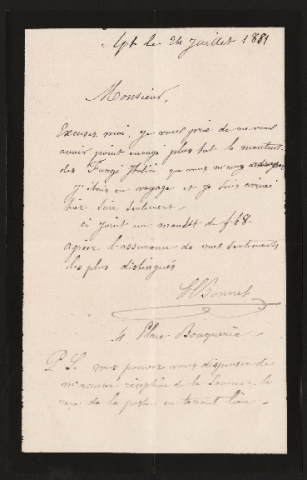 Apt le 24 Juillet 1881
Monsieur,
Excusez moi, je vous prie de ne vous
avoir point envoyé plus tôt le montant
des Fungi Italici que vous m'avez
j'étais en voyage et je suis arrivé
hier soir seulement.
ci joint un mandat de f
agréez l'assurance de mes sentiments
les plus distingués
Bonnet
4 Place Bouquerie.
P. S. vous pouvez vous dispenser de
m'accuser réception de la somme, le
reçu de la poste en tenant lieu.